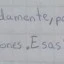 damente, po
ones. Esas